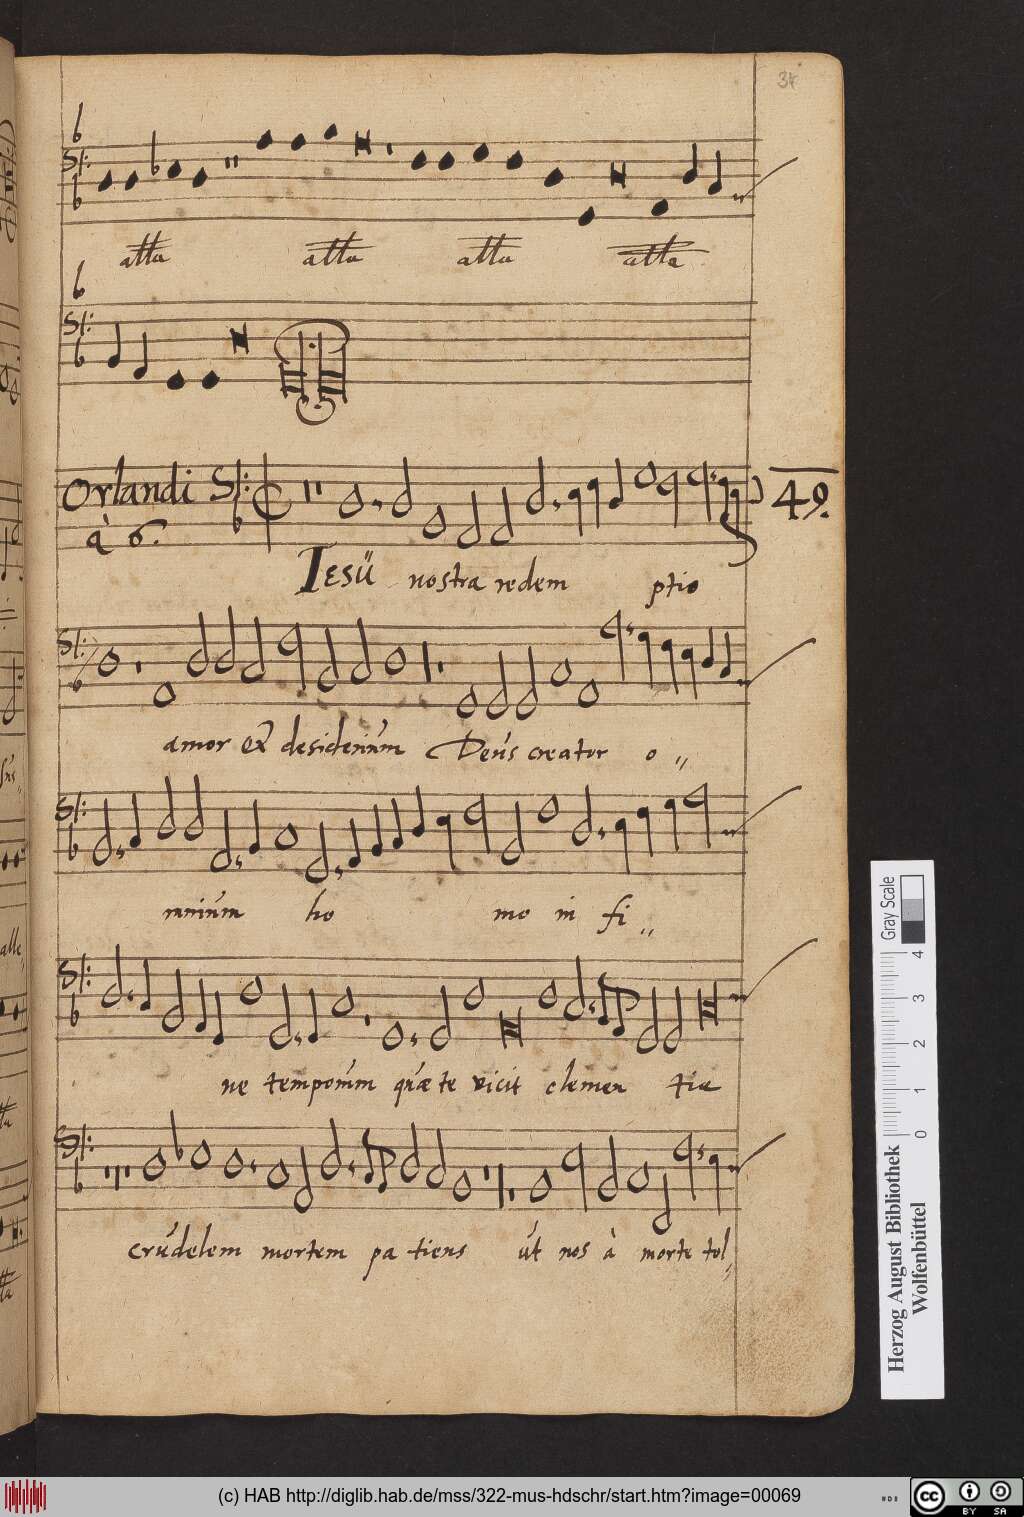 34
alla alla alla alla
Orlandi
à 6.
49.
Iesu nostra redem ptio
amor et desiderium Deus creator o
mnium ho mo in fi
ne temporum quae te vicit clemen tia
crudelem mortem pa tiens ut nos à morte tol
alle
Gray Scale
0 1 2 3 4
Herzog August Bibliothek
Wolfenbüttel
(c) HAB http://diglib.hab.de/mss/322-mus-hdschr/start.htm?image=00069
cc BY SA